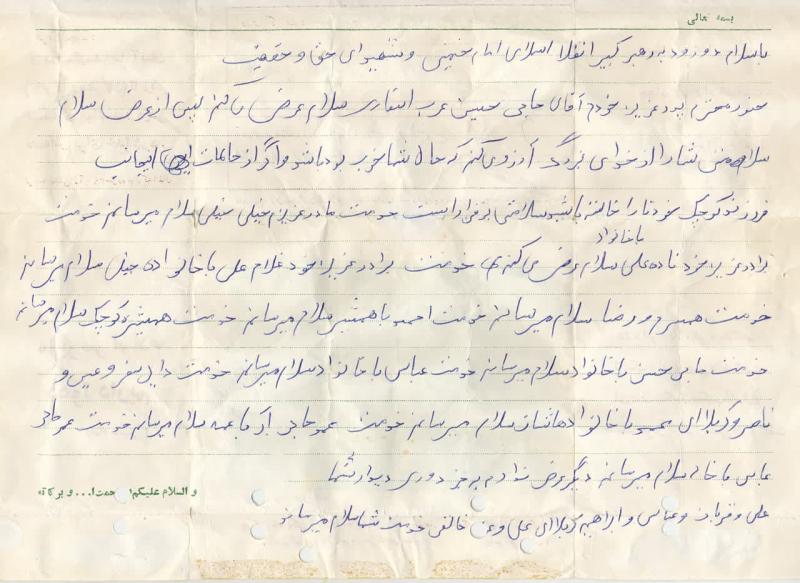 بسمه تعالی
با سلام و درود به رهبر کبیر انقلاب اسلامی امام خمینی و شهیدای حق و حقیقت
حضور محترم پدر عزیز خودم آقای حاجی حسین عرب انصاری سلام عرض میکنم پس از عرض سلام
سلامتی شما را از خدای بزرگ آرزو می کنم که حال شما خوب بوده باشد و اگر از حالات اینجانب
فرزند کوچک خود را خواسته باشید سلامتی برقرار است خدمت مادر عزیزم خیلی خیلی سلام میرسانم خدمت
با خانواده
برادر عزیز خود علی سلام عرض می کنم خدمت برادر عزیز خود غلام علی با خانواده خیلی سلام میرسانم
خدمت همسرم و رضا سلام میرسانم خدمت احمد با همشیره سلام میرسانم خدمت همشیره کوچک سلام میرسانم
خدمت حاجی حسن با خانواده سلام میرسانم خدمت عباس با خانواده سلام میرسانم خدمت دایی صفر و عیسی و
ناصر و کربلای با خانواده هاشان سلام میرسانم خدمت عمو حاجی اکبر با عمه سلام میرسانم خدمت عمو حاجی
عباس با خاله سلام میرسانم دیگر عرضی ندارم به جز دوری دیدار شما
والسلام علیکم و رحمت ا... و برکاته
علی و قربان و عباس و ابراهیم کربلای علی و خدمت شما سلام میرسانند